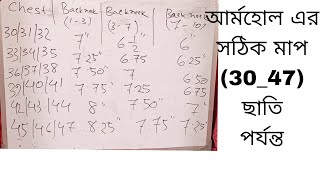 Chest Back neck Back neck Back neck
(1-3) (3-7) (7-10)
30/31/32 7" 6 1/2" 6"
33/34/35 7.25" 6.75 6.25"
36/37/38 7.50" 7 6.50
39/40/41 7.75" 7.25 6.75
42/43/44 8" 7.50" 7"
45/46/47 8.25" 7.75" 7.25"
আর্মহোল এর
সঠিক মাপ
(30_47)
ছাতি
পর্যন্ত